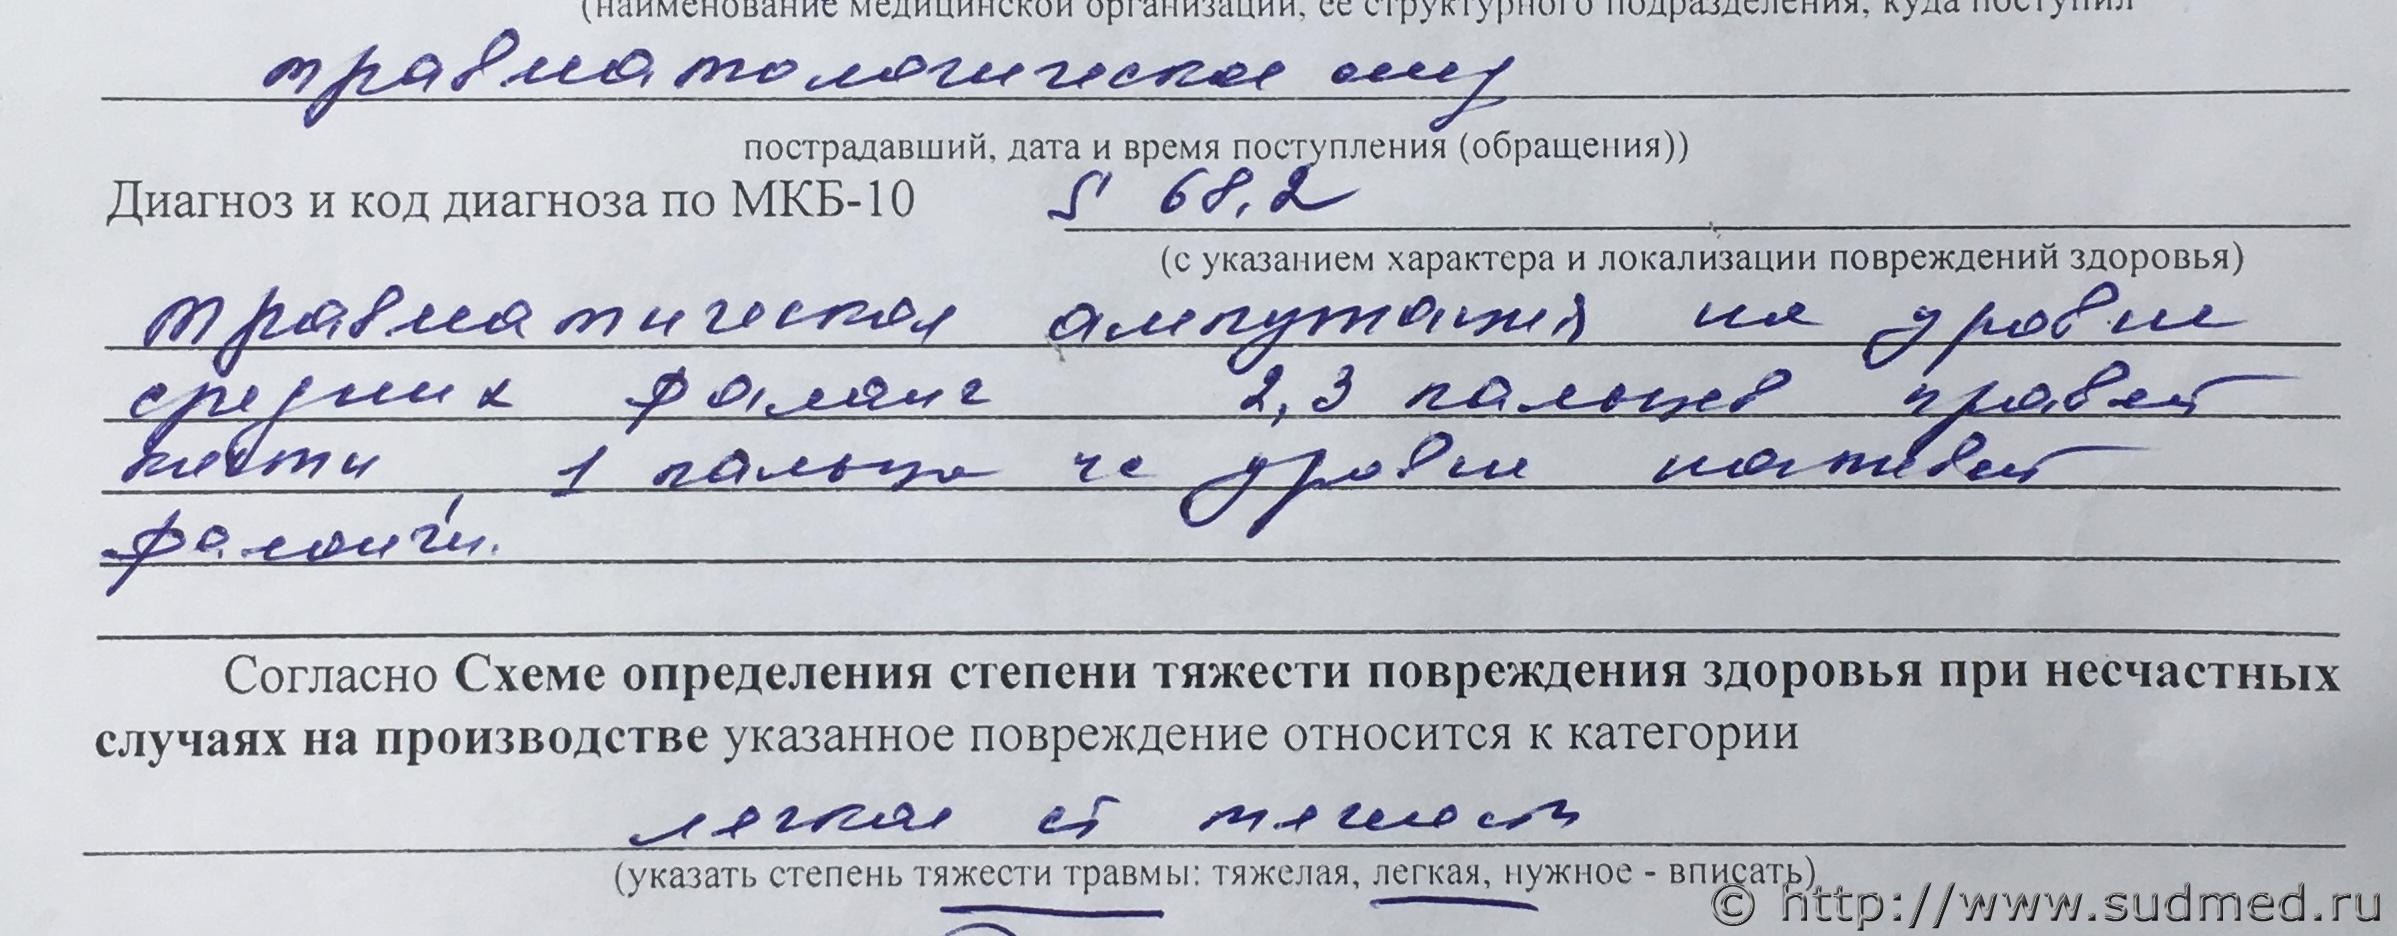 (наименование медицинской организации, ее структурного подразделения, куда поступил
травматологическое
пострадавший, дата и время поступления (обращения))
Диагноз и код диагноза по МКБ-10 S 68.2
(с указанием характера и локализации повреждений здоровья)
травматическая ампутация на уровне
средних фаланг 2,3 пальцев правой
кисти 1 пальца на уровне ногтевой
фаланги.
Согласно Схеме определения степени тяжести повреждения здоровья при несчастных
случаях на производстве указанное повреждение относится к категории
легкая ст
(указать степень тяжести травмы: тяжелая, легкая, нужное - вписать)
© http://www.sudmed.ru